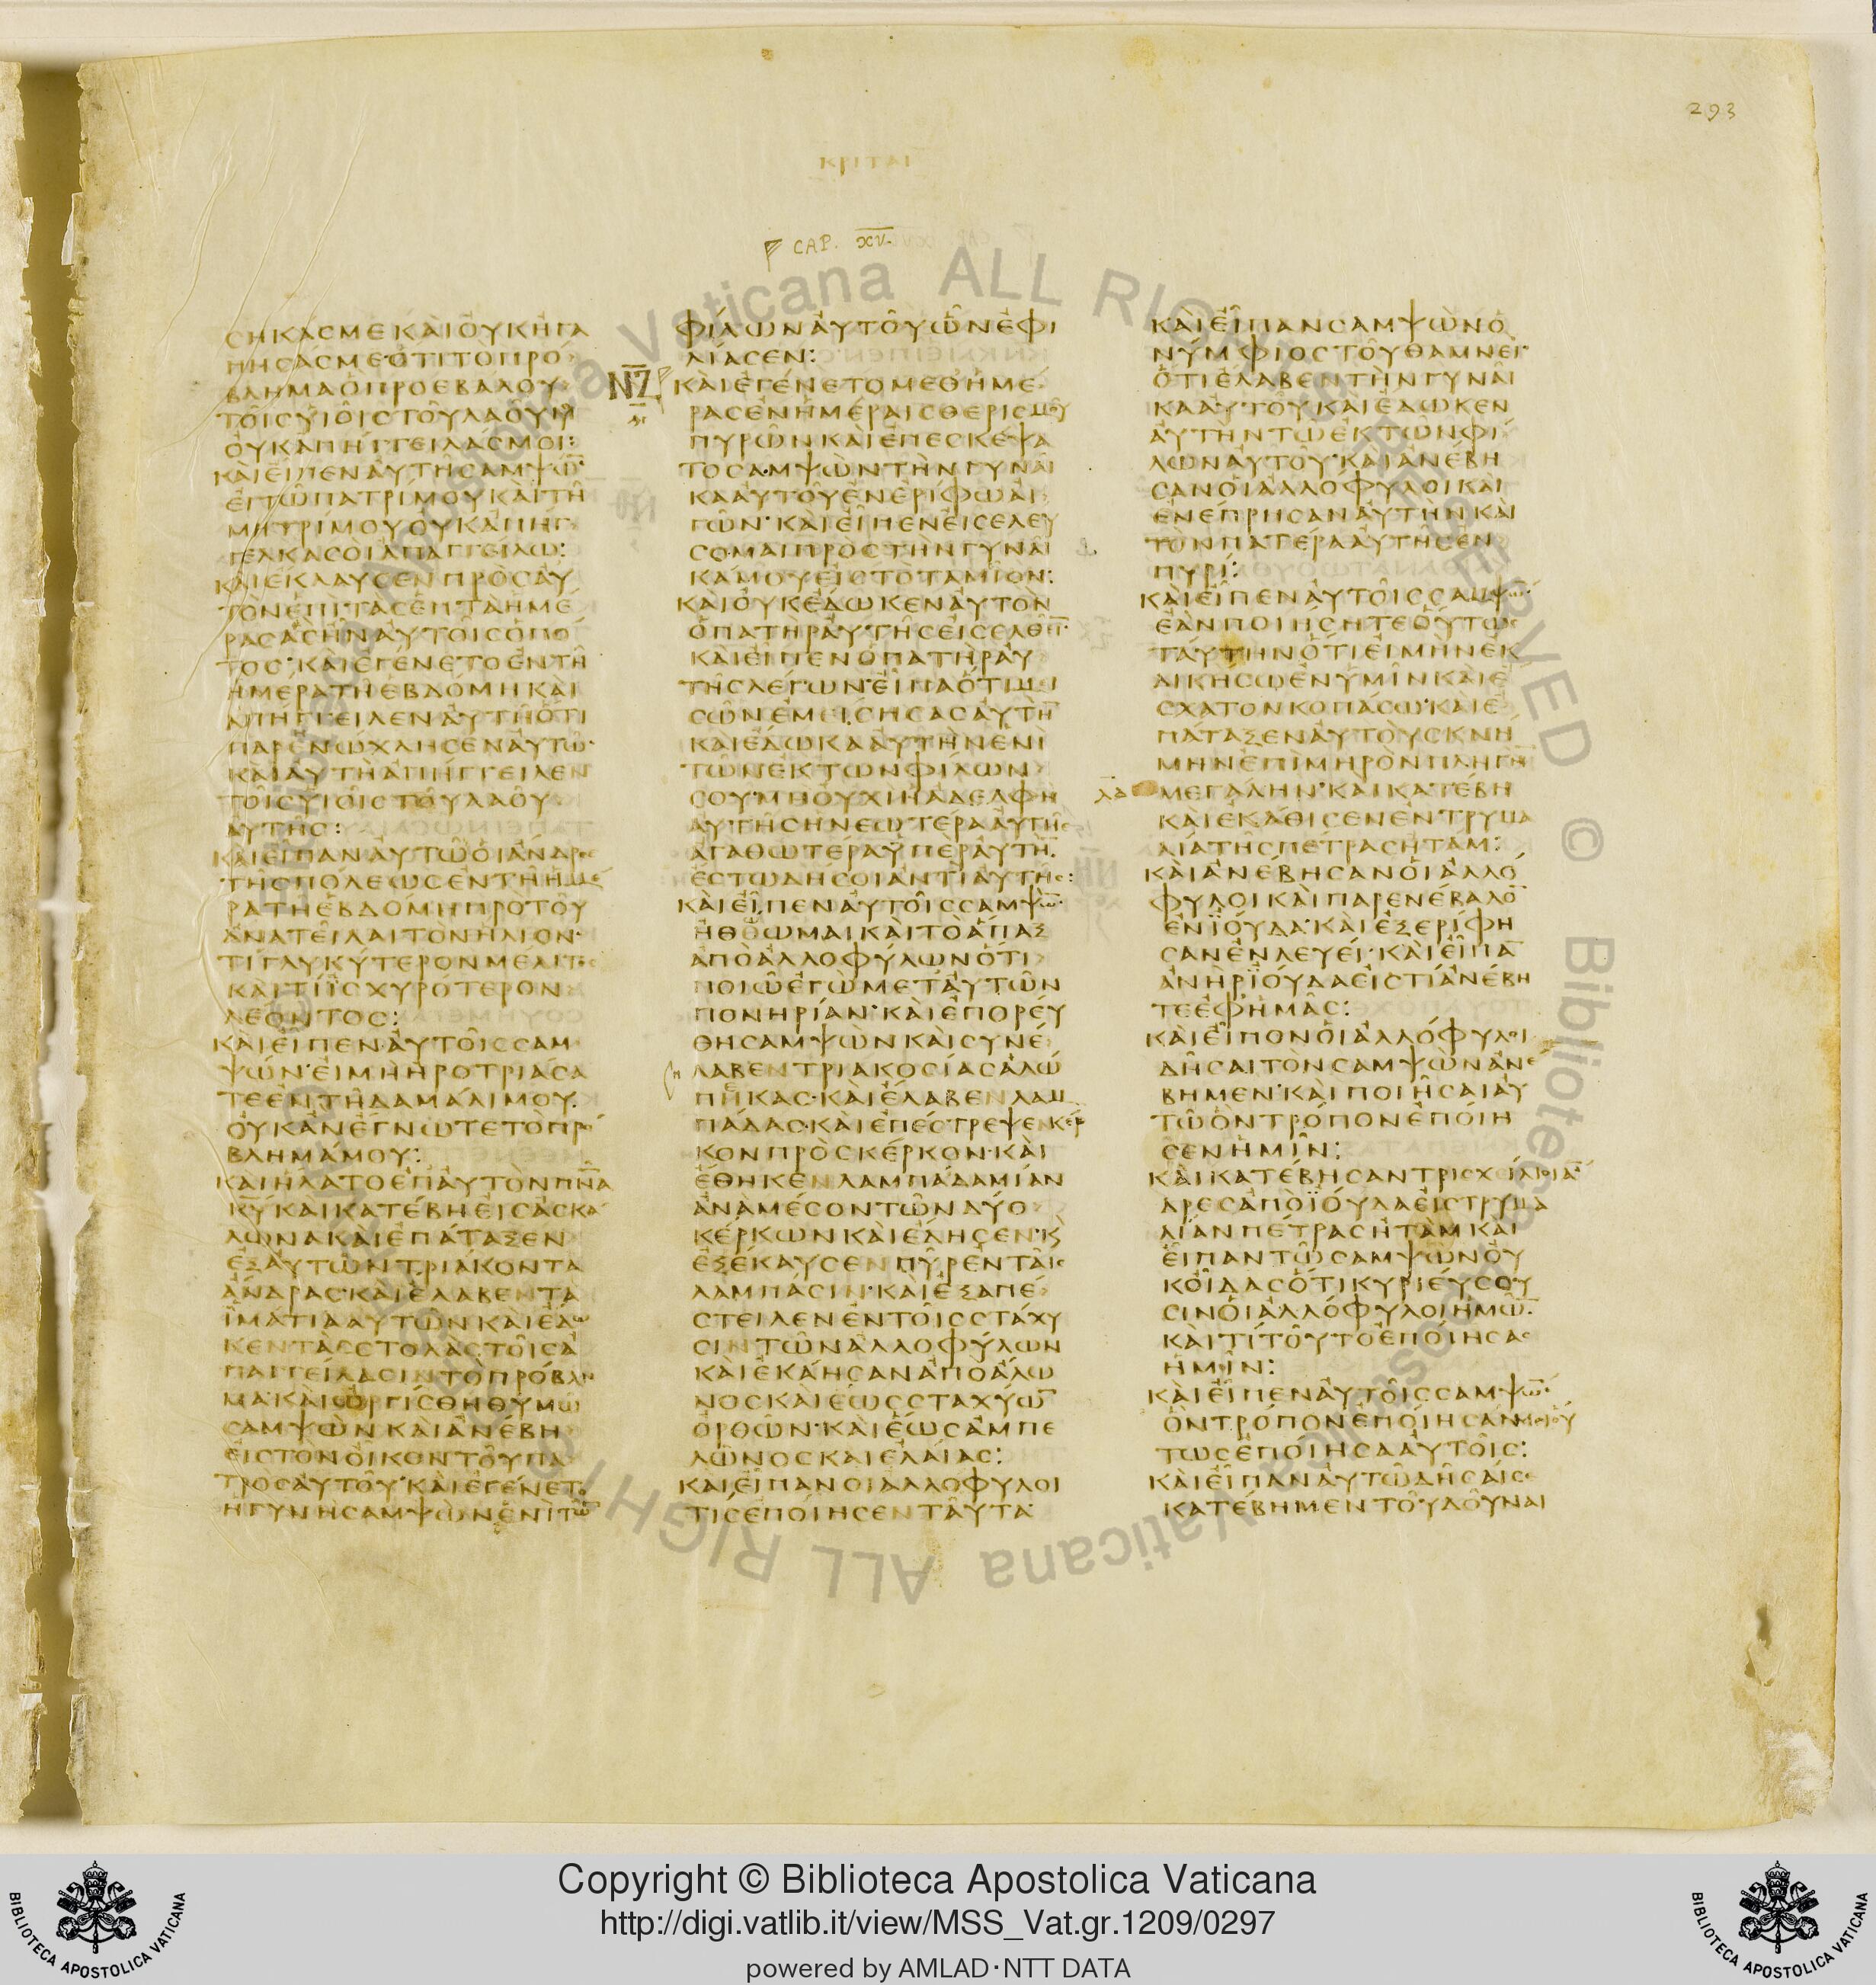 293
ΚΡΙΤΑΙ
CAP. XV.
ϹΗΚΑϹΜΕΚΑΙΟΥΚΗΓΑ
ΠΗϹΑϹΜΕΟΤΙΤΟΠΡΟ
ΒΛΗΜΑΟΠΡΟΕΒΑΛΟΥ
ΤΟΙϹΥΙΟΙϹΤΟΥΛΑΟΥΜ
ΟΥΚΑΠΗΓΓΕΙΛΑϹΜΟΙ:
ΚΑΙΕΙΠΕΝΑΥΤΗϹΑΜΨΩ̅
ΕΙΤΩΠΑΤΡΙΜΟΥΚΑΙΤΗ
ΜΗΤΡΙΜΟΥΟΥΚΑΠΗΓ
ΓΕΛΚΑϹΟΙΑΠΑΓΓΕΙΛΩ:
ΚΑΙΕΚΛΑΥϹΕΝΠΡΟϹΑΥ
ΤΟΝΕΠΙΤΑϹΕΠΤΑΗΜΕ
ΡΑϹΑϹΗΝΑΥΤΟΙϹΟΠΟ
ΤΟϹ·ΚΑΙΕΓΕΝΕΤΟΕΝΤΗ
ΗΜΕΡΑΤΗΕΒΔΟΜΗΚΑΙ
ΑΠΗΓΓΕΙΛΕΝΑΥΤΗΟΤΙ
ΠΑΡΕΝΩΧΛΗϹΕΝΑΥΤΩ·
ΚΑΙΑΥΤΗΑΠΗΓΓΕΙΛΕΝ
ΤΟΙϹΥΙΟΙϹΤΟΥΛΑΟΥ
ΑΥΤΗϹ:
ΚΑΙΕΙΠΑΝΑΥΤΩΟΙΑΝΔΡΕϹ
ΤΗϹΠΟΛΕΩϹΕΝΤΗΗΜΕ
ΡΑΤΗΕΒΔΟΜΗΠΡΟΤΟΥ
ΑΝΑΤΕΙΛΑΙΤΟΝΗΛΙΟΝ·
ΤΙΓΛΥΚΥΤΕΡΟΝΜΕΛΙΤΟϹ
ΚΑΙΤΙΙϹΧΥΡΟΤΕΡΟΝ
ΛΕΟΝΤΟϹ:
ΚΑΙΕΙΠΕΝΑΥΤΟΙϹϹΑΜ
ΨΩΝ·ΕΙΜΗΗΡΟΤΡΙΑϹΑ
ΤΕΕΝΤΗΔΑΜΑΛΙΜΟΥ
ΟΥΚΑΝΕΓΝΩΤΕΤΟΠΡΟ
ΒΛΗΜΑΜΟΥ:
ΚΑΙΗΛΑΤΟΕΠΑΥΤΟΝΠΝ̅Α
ΚΥ̅ΚΑΙΚΑΤΕΒΗΕΙϹΑϹΚΑ
ΛΩΝΑΚΑΙΕΠΑΤΑΞΕΝ
ΕΞΑΥΤΩΝΤΡΙΑΚΟΝΤΑ
ΑΝΔΡΑϹ·ΚΑΙΕΛΑΒΕΝΤΑ
ΙΜΑΤΙΑΑΥΤΩΝΚΑΙΕΔΩ
ΚΕΝΤΑϹϹΤΟΛΑϹΤΟΙϹΑ
ΠΑΓΓΕΙΛΑϹΙΝΤΟΠΡΟΒΛΗ
ΜΑ·ΚΑΙΩΡΓΙϹΘΗΘΥΜΩ
ϹΑΜΨΩΝΚΑΙΑΝΕΒΗ
ΕΙϹΤΟΝΟΙΚΟΝΤΟΥΠΑ
ΤΡΟϹΑΥΤΟΥ·ΚΑΙΕΓΕΝΕΤΟ
ΗΓΥΝΗϹΑΜΨΩΝΕΝΙΤΩ̅
ΦΙΛΩΝΑΥΤΟΥΩΝΕΦΙ
ΛΙΑϹΕΝ:
ΝΖ̅ ΚΑΙΕΓΕΝΕΤΟΜΕΘΗΜΕ
ΡΑϹΕΝΗΜΕΡΑΙϹΘΕΡΙϹΜΟΥ
ΠΥΡΩΝΚΑΙΕΠΕϹΚΕΨΑ
ΤΟϹΑΜΨΩΝΤΗΝΓΥΝΑΙ
ΚΑΑΥΤΟΥΕΝΕΡΙΦΩΑΙ
ΓΩΝ·ΚΑΙΕΙΠΕΝΕΙϹΕΛΕΥ
ϹΟΜΑΙΠΡΟϹΤΗΝΓΥΝΑΙ
ΚΑΜΟΥΕΙϹΤΟΤΑΜΙΟΝ:
ΚΑΙΟΥΚΕΔΩΚΕΝΑΥΤΟΝ
ΟΠΑΤΗΡΑΥΤΗϹΕΙϹΕΛΘΕΙ̅·
ΚΑΙΕΙΠΕΝΟΠΑΤΗΡΑΥ
ΤΗϹΛΕΓΩΝ·ΕΙΠΑΟΤΙΜΙ
ϹΩΝΕΜΕΙϹΗϹΑϹΑΥΤΗ̅
ΚΑΙΕΔΩΚΑΑΥΤΗΝΕΝΙ
ΤΩΝΕΚΤΩΝΦΙΛΩΝ
ϹΟΥ·ΜΗΟΥΧΙΗΑΔΕΛΦΗ
ΑΥΤΗϹΗΝΕΩΤΕΡΑΑΥΤΗϹ
ΑΓΑΘΩΤΕΡΑΥΠΕΡΑΥΤΗ̅
ΕϹΤΩΔΗϹΟΙΑΝΤΙΑΥΤΗϹ:
ΚΑΙΕΙΠΕΝΑΥΤΟΙϹϹΑΜΨΩ̅·
ΗΘΟΩΜΑΙΚΑΙΤΟΑΠΑΞ
ΑΠΟΑΛΛΟΦΥΛΩΝΟΤΙ
ΠΟΙΩΕΓΩΜΕΤΑΥΤΩΝ
ΠΟΝΗΡΙΑΝ·ΚΑΙΕΠΟΡΕΥ
ΘΗϹΑΜΨΩΝΚΑΙϹΥΝΕ
ΛΑΒΕΝΤΡΙΑΚΟϹΙΑϹΑΛΩ
ΠΗΚΑϹ·ΚΑΙΕΛΑΒΕΝΛΑΜ
ΠΑΔΑϹ·ΚΑΙΕΠΕϹΤΡΕΨΕΝΚΕΡ
ΚΟΝΠΡΟϹΚΕΡΚΟΝ·ΚΑΙ
ΕΘΗΚΕΝΛΑΜΠΑΔΑΜΙΑΝ
ΑΝΑΜΕϹΟΝΤΩΝΔΥΟ
ΚΕΡΚΩΝΚΑΙΕΔΗϹΕΝ·Κ
ΕΞΕΚΑΥϹΕΝΠΥΡΕΝΤΑΙϹ
ΛΑΜΠΑϹΙΝ·ΚΑΙΕΞΑΠΕ
ϹΤΕΙΛΕΝΕΝΤΟΙϹϹΤΑΧΥ
ϹΙΝΤΩΝΑΛΛΟΦΥΛΩΝ
ΚΑΙΕΚΑΗϹΑΝΑΠΟΑΛΩ
ΝΟϹΚΑΙΕΩϹϹΤΑΧΥΩ̅
ΟΡΘΩΝ·ΚΑΙΕΩϹΑΜΠΕ
ΛΩΝΟϹΚΑΙΕΛΑΙΑϹ:
ΚΑΙΕΙΠΑΝΟΙΑΛΛΟΦΥΛΟΙ
ΤΙϹΕΠΟΙΗϹΕΝΤΑΥΤΑ
ΚΑΙΕΙΠΑΝϹΑΜΨΩΝΟ
ΝΥΜΦΙΟϹΤΟΥΘΑΜΝΕΙ·
ΟΤΙΕΛΑΒΕΝΤΗΝΓΥΝΑΙ
ΚΑΑΥΤΟΥΚΑΙΕΔΩΚΕΝ
ΑΥΤΗΝΤΩΕΚΤΩΝΦΙ
ΛΩΝΑΥΤΟΥ·ΚΑΙΑΝΕΒΗ
ϹΑΝΟΙΑΛΛΟΦΥΛΟΙΚΑΙ
ΕΝΕΠΡΗϹΑΝΑΥΤΗΝΚΑΙ
ΤΟΝΠΑΤΕΡΑΑΥΤΗϹΕΝ
ΠΥΡΙ:
ΚΑΙΕΙΠΕΝΑΥΤΟΙϹϹΑΜΨΩ̅·
ΕΑΝΠΟΙΗϹΗΤΕΟΥΤΩϹ
ΤΑΥΤΗΝΟΤΙΕΙΜΗΝΕΚ
ΔΙΚΗϹΩΕΝΥΜΙΝΚΑΙΕ
ϹΧΑΤΟΝΚΟΠΑϹΩ·ΚΑΙΕ
ΠΑΤΑΞΕΝΑΥΤΟΥϹΚΝΗ
ΜΗΝΕΠΙΜΗΡΟΝΠΛΗΓΗ̅
ΜΕΓΑΛΗΝ·ΚΑΙΚΑΤΕΒΗ
ΚΑΙΕΚΑΘΙϹΕΝΕΝΤΡΥΜΑ
ΛΙΑΤΗϹΠΕΤΡΑϹΗΤΑΜ:
ΚΑΙΑΝΕΒΗϹΑΝΟΙΑΛΛΟ
ΦΥΛΟΙΚΑΙΠΑΡΕΝΕΒΑΛΟ̅
ΕΝΙΟΥΔΑ·ΚΑΙΕΞΕΡΙΦΗ
ϹΑΝΕΝΛΕΥΕΙ·ΚΑΙΕΙΠΑ̅
ΑΝΗΡΙΟΥΔΑΕΙϹΤΙΑΝΕΒΗ
ΤΕΕΦΗΜΑϹ:
ΚΑΙΕΙΠΟΝΟΙΑΛΛΟΦΥΛΟΙ
ΔΗϹΑΙΤΟΝϹΑΜΨΩΝΑΝΕ
ΒΗΜΕΝ·ΚΑΙΠΟΙΗϹΑΙΑΥ
ΤΩΟΝΤΡΟΠΟΝΕΠΟΙΗ
ϹΕΝΗΜΙΝ:
ΚΑΙΚΑΤΕΒΗϹΑΝΤΡΙϹΧΕΙΛΙΟΙΑ̅
ΔΡΕϹΑΠΟΙΟΥΔΑΕΙϹΤΡΥΜΑ
ΛΙΑΝΠΕΤΡΑϹΗΤΑΜΚΑΙ
ΕΙΠΑΝΤΩϹΑΜΨΩΝΟΥ
ΚΟΙΔΑϹΟΤΙΚΥΡΙΕΥϹΟΥ
ϹΙΝΟΙΑΛΛΟΦΥΛΟΙΗΜΩ̅·
ΚΑΙΤΙΤΟΥΤΟΕΠΟΙΗϹΑϹ
ΗΜΙΝ:
ΚΑΙΕΙΠΕΝΑΥΤΟΙϹϹΑΜΨΩ̅·
ΟΝΤΡΟΠΟΝΕΠΟΙΗϹΑΝΜΟΙΟΥ
ΤΩϹΕΠΟΙΗϹΑΑΥΤΟΙϹ:
ΚΑΙΕΙΠΑΝΑΥΤΩΔΗϹΑΙϹΕ
ΚΑΤΕΒΗΜΕΝΤΟΥΔΟΥΝΑΙ
Copyright © Biblioteca Apostolica Vaticana
http://digi.vatlib.it/view/MSS_Vat.gr.1209/0297
powered by AMLAD·NTT DATA
BIBLIOTECA APOSTOLICA VATICANA
BIBLIOTECA APOSTOLICA VATICANA